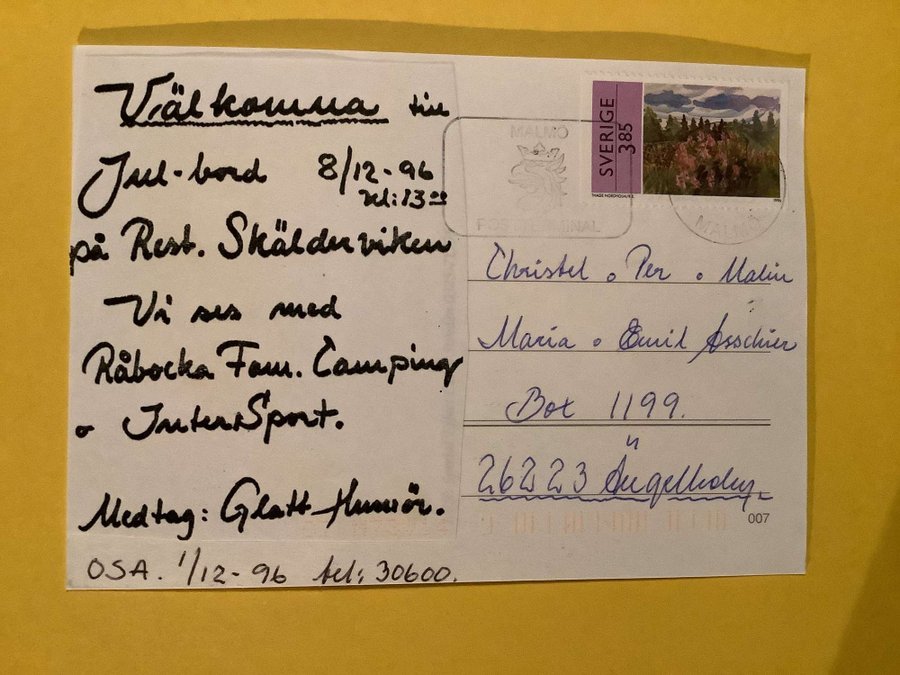 Välkomna till
Jul-bord 8/12-96
kl:13⁰⁰
på Rest. Skälderviken
Vi ses med
Råbocka Fam. Camping
o InterSport.
Medtag: Glatt Humör.
OSA. 1/12-96 tel: 30600.
SVERIGE
3.85
MALMÖ
POSTTERMINAL
MALMÖ
Christel o Per o Malin
Maria o Emil
Box 1199.
26223 Ängelholm
007